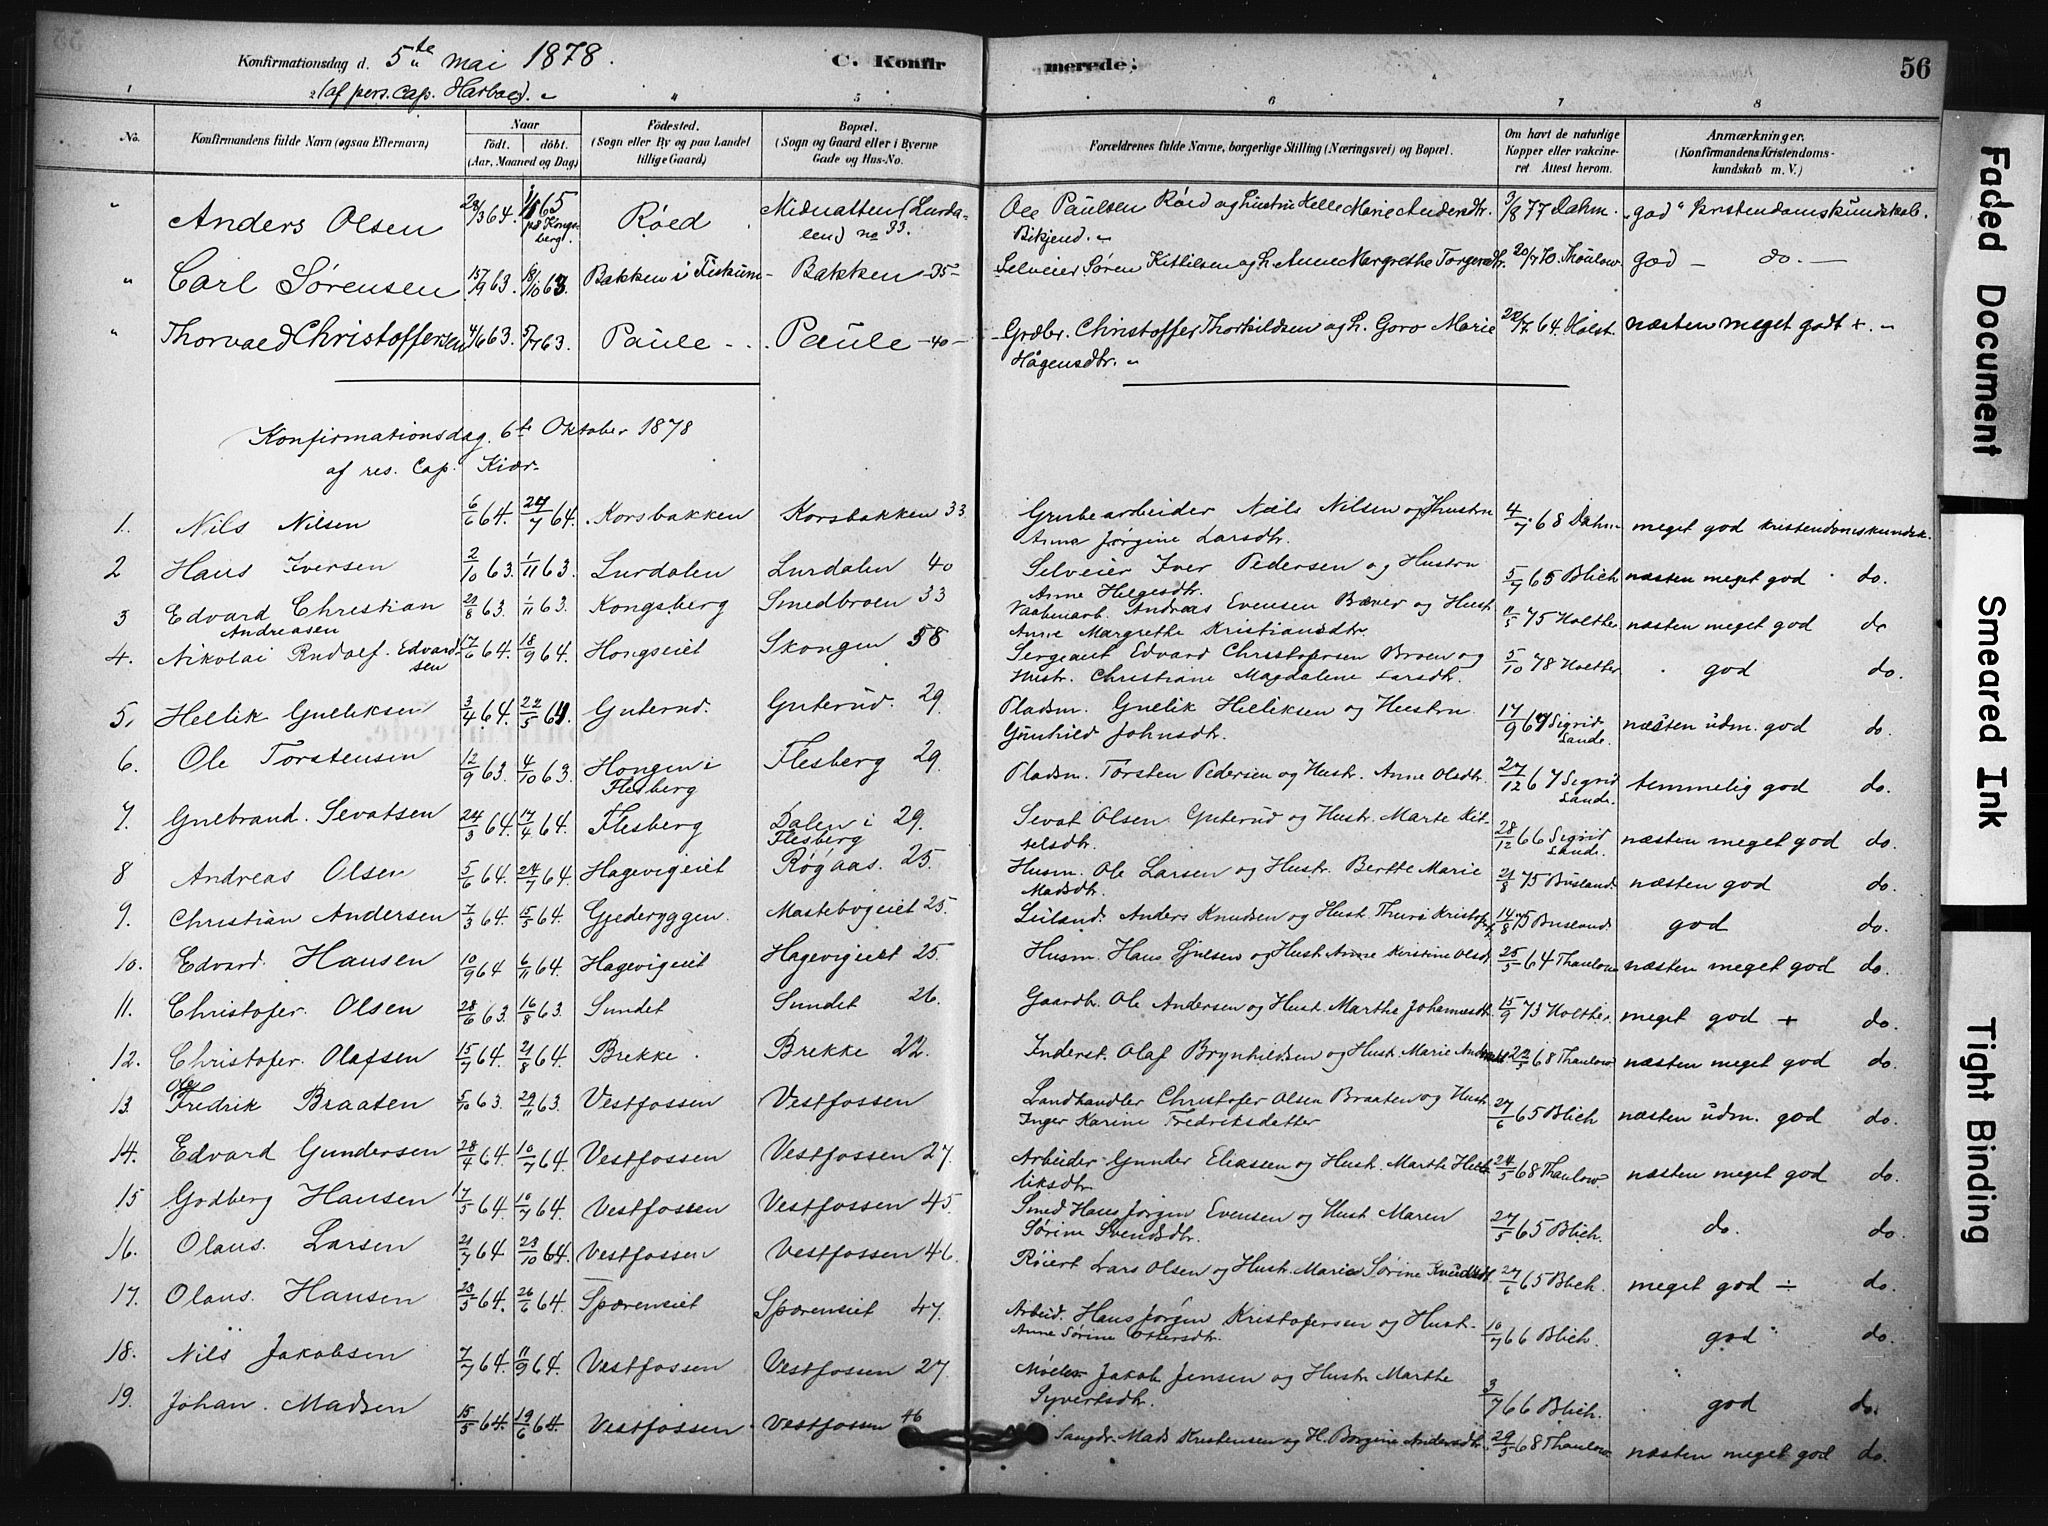 Konfirmationsdag d. 5te Mai 1878. C. Konfirmerede. 56
(af pers. Cap. Harboe).
1 2 4 5 6 7 8
No. Konfirmandens fulde Navn (ogsaa Efternavn) Naar födt. döbt. (Aar, Maaned og Dag) Födested. (Sogn eller By og paa Landet tillige Gaard) Bopæl. (Sogn og Gaard eller i Byerne Gade og Hus-No.) Forældrenes fulde Navne, borgerlige Stilling (Næringsvei) og Bopæl. Om havt de naturlige Kopper eller vakcineret Attest herom. Anmærkninger. (Konfirmandens Kristendomskundskab m. V.)
" Anders Olsen 28/3 64. 1/1 65 på Kongsberg. Røed Midnatten (Lurdalen) no 33. Ole Paulsen Røed og hustru Helle Marie Andersdtr. Bikjend. 3/8 77 Dahm. god kristendomskundskab.
" Carl Sørensen 15/9 63. 18/10 63. Bakken i Fiskum Bakken -35- Selveier Søren Kittilsen og h. Anne Margrethe Torgersdtr. 20/7 70 Thoulow. god - do. -
" Thorvald Christoffersen 4/6 63. 5/7 63. Paule - Paule -40- Grdbr. Christoffer Thorkildsen og h. Goro Marie Hågensdtr. 20/7 64. Holst. næsten meget godt +.
Konfirmationsdag 6te Oktober 1878
af res. Cap. Kiær
1. Nils Nilsen 6/6 64. 24/7 64. Korsbakken Korsbakken 33 Grubearbeider Nils Nilsen og Hustru Anna Jørgine Larsdtr. 4/7 68 Dahm meget god kristendomskundsk.
2 Hans Iversen 2/10 63. 1/11 63. Lurdalen Lurdalen 40 Selveier Iver Pedersen og Hustru Anne Helgesdtr. 5/7 65 Blich næsten meget god do.
3 Edvard Christian Andreasen 29/8 63. 1/11 63. Kongsberg Smedbroen 33 Vaabenarb. Andreas Evensen Bæver og Hust. Anne Margrethe Kristiansdtr. 11/5 75 Holther næsten meget god do
4. Nikolai Rudolf Edvardsen 17/6 64. 18/9 64. Hongseiet Skongen 58 Sergeant Edvard Christofersen Broen og Hustr. Christiane Magdalene Larsdtr. 5/10 78 Holther god do.
5. Hellik Gulliksen 3/4 64. 22/5 64. Guterud. Guterud. 29. Pladsm. Gullik Helliksen og Hustru Gunhild Johnsdtr. 17/9 67 Sigrid Sande. næsten udm. god do.
6. Ole Torstensen 12/9 63. 4/10 63. Hongen i Flesberg Flesberg 29. Pladsm. Torsten Pedersen og Hustr. Anne Olsdtr. 27/12 67 Sigrid Sande. temmelig god do.
7. Gulbrand Sevatsen 24/3 64. 17/4 64. Flesberg Dalen i Flesberg 29. Sevat Olsen Guterud og Hust. Marte Kittelsdtr. 28/12 66 Sigrid Sande. næsten meget god do.
8 Andreas Olsen 5/6 64. 24/7 64. Hagevigeiet Røgaas. 25. Husm. Ole Larsen og Hustr. Berthe Marie Madsdtr. 21/8 75 Busland næsten god do.
9. Christian Andersen 7/3 64. 15/5 64. Gjederyggen. Mastebogeiet 25. Leiland. Anders Knudsen og Hust. Thuri Kristofersd. 14/8 75 Busland god do.
10. Edvard Hansen 10/9 64 6/11 64. Hagevigeiet Hagevigeiet 25. Husm. Hans Gulsen og Hust. Anne Kirstine Olsdt. 25/5 64 Thaulow næsten meget god do.
11. Christofer Olsen 28/6 63. 16/8 63. Sundet Sundet 26. Gaardbr. Ole Andersen og Hust. Marthe Johannesdtr. 15/9 73 Holther. meget god + do.
12. Christofer Olafsen 15/7 64. 21/8 64. Brekke. Brekke 22. Inderst. Olaf Brynhildsen og Hust. Marie 22/5 68 Thaulow næsten meget god do.
13. Ole Fredrik Braaten 5/10 63. 29/11 63. Vestfossen Vestfossen Landhandler Christofer Olsen Braaten og Hust. Inger Karine Fredriksdatter 27/6 65 Blich næsten udm. god do.
14. Edvard Gundersen 28/4 64. 10/7 64. Vestfossen Vestfossen 27. Arbeider Gunder Eliassen og Hust. Marthe Helliksdtr. 24/5 68 Thaulow. næsten meget god do.
15 Godberg Hansen 17/5 64. 10/7 64. Vestfossen Vestfossen 45. Smed Hans Jørgen Evensen og Hust. Maren Sørine Svendsdtr. 27/5 65 Blich. do. do.
16. Olaus Larsen 21/7 64. 23/10 64. Vestfossen Vestfossen 46. Røiert Lars Olsen og Hust. Marie Sørine Knudsdt. 27/6 65 Blich. meget god ÷ do.
17. Olaus. Hansen 23/5 64. 26/6 64. Spærenseiet Spærenseiet 47. Arbeid. Hans Jørgen Kristofersen og Hust. Anne Sørine Ottersdtr. 10/7 66 Blich god do.
18. Nils Jakobsen 7/7 64. 11/9 64. Vestfossen Vestfossen 27 Møller Jakob Jensen og Hustr. Marthe Syvertsdtr. 3/7 66 Blich. god do.
19. Johan. Madsen 15/5 64. 19/6 64. Vestfossen Vestfossen 46 Saugdr. Mads Kristensen og H. Borgine Andersdtr. 29/5 68 Thaulow næsten meget god do.
Faded Document
Smeared Ink
Tight Binding